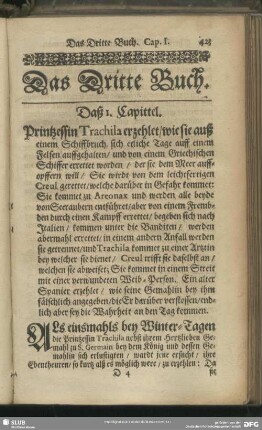 Das Dritte Buch. Cap. I. 423
Das Dritte Buch.
Daß 1. Capittel.
Printzessin Trachila erzehlet/ wie sie auß
einem Schiffbruch, sich etliche Tage auff einem
Felsen auffgehalten/ und von einem Griechischen
Schiffer errettet worden / der sie dem Meer auff-
opffern will / Sie wiedt von dem leichtfertigen
Creul gerettet/ welche darüber in Gefahr kommet:
Sie kommet zu Areonax und werden alle beyde
von Seeraubern entführet/ aber von einem Fremb-
den durch einen Kampff errettet/ begeben sich nach
Italien / kommen unter die Banditen/ werden
abermahl errettet/ in einem andern Anfall werden
sie getrennet/ und Trachila kommet zu einer Artzin
bey welcher sie dienet / Creul trifft sie daselbst an /
welchen sie abweiset; Sie kommet in einem Streit
mit einer vermundeten Weib-Person. Ein alter
Spanier erzehlet / wie seine Gemahlin bey ihm
fälschlich angegeben/ die Er darüber verstossen/ end-
lich aber sey die Wahrheit an den Tag kommen.
ALs einsmahls bey Winter-Tagen
die Printzessin Trachila nebst ihrem Hertzlieben Ge-
mahl zu S. Germain bey dem König und dessen Ge-
mahlin sich erlustigten / wardt jene ersucht / ihre
Ebentheuren/ so kurtz alß es möglich were / zu erzehlen: Da
D 4
SLUB
DFG